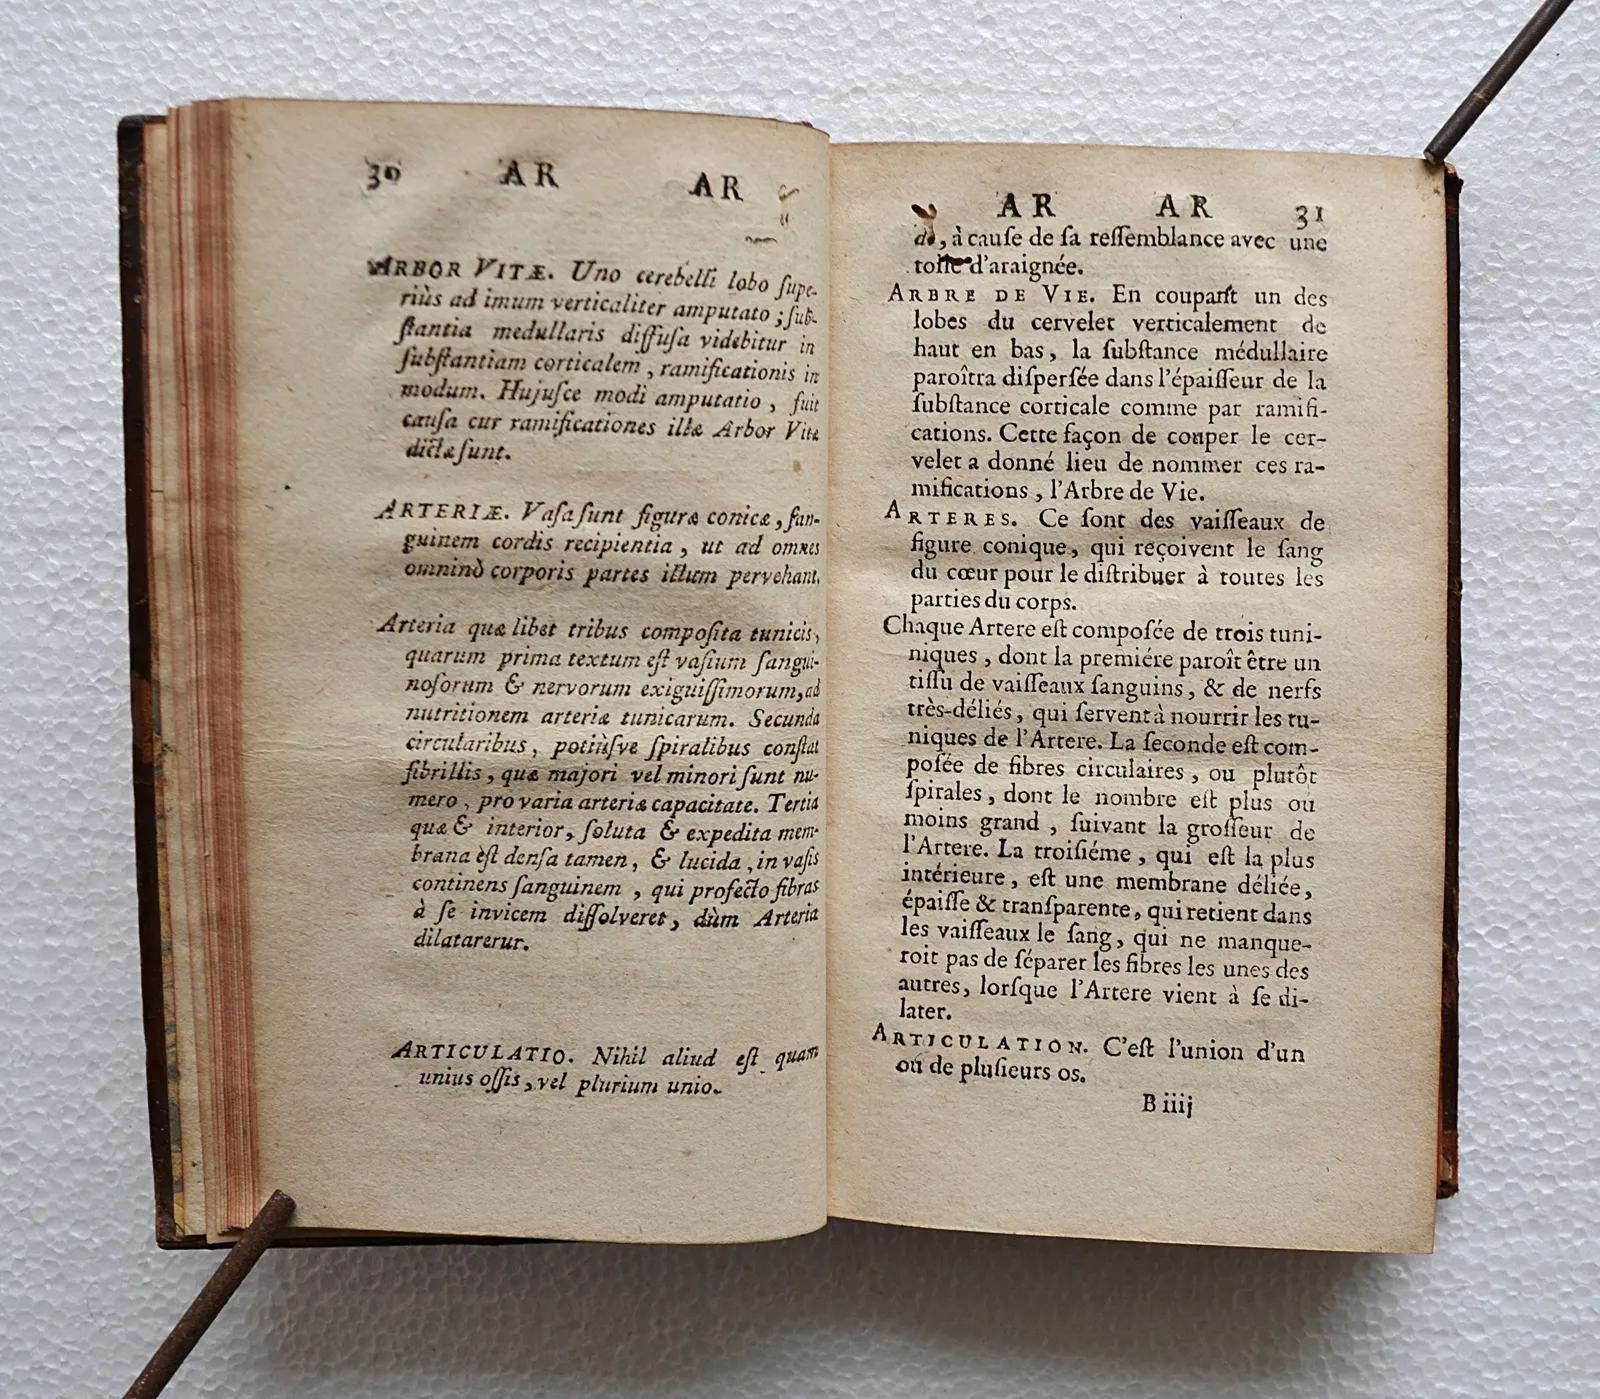 30 AR AR
ARBOR VITÆ. Uno cerebelli lobo ſupe-
riùs ad imum verticaliter amputato ; ſub-
ſtantia medullaris diffuſa videbitur in
ſubſtantiam corticalem , ramificationis in
modum. Hujuſce modi amputatio , fuit
cauſa cur ramificationes illæ Arbor Vitæ
dictæ ſunt.
ARTERIÆ. Vaſa ſunt figuræ conicæ , ſan-
guinem cordis recipientia , ut ad omnes
omninò corporis partes illum pervehant.
Arteria quæ libet tribus compoſita tunicis,
quarum prima textum eſt vaſium ſangui-
noſorum & nervorum exiguiſſimorum, ad
nutritionem arteriæ tunicarum. Secunda
circularibus, potiùſve ſpiralibus conſtat
fibrillis , quæ majori vel minori ſunt nu-
mero , pro varia arteriæ capacitate. Tertia
quæ & interior, ſoluta & expedita mem-
brana èſt denſa tamen, & lucida , in vaſis
continens ſanguinem , qui profecto fibras
à ſe invicem diſſolveret, dùm Arteria
dilatarerur.
ARTICULATIO. Nihil aliud eſt quam
unius oſſis, vel plurium unio.
AR AR 31
de, à cauſe de ſa reſſemblance avec une
toile d'araignée.
ARBRE DE VIE. En coupant un des
lobes du cervelet verticalement de
haut en bas, la ſubſtance médullaire
paroîtra diſperſée dans l'épaiſſeur de la
ſubſtance corticale comme par ramifi-
cations. Cette façon de couper le cer-
velet a donné lieu de nommer ces ra-
mifications , l'Arbre de Vie.
ARTERES. Ce ſont des vaiſſeaux de
figure conique, qui reçoivent le ſang
du cœur pour le diſtribuer à toutes les
parties du corps.
Chaque Artere eſt compoſée de trois tuni-
niques , dont la premiére paroît être un
tiſſu de vaiſſeaux ſanguins, & de nerfs
très-déliés, qui ſervent à nourrir les tu-
niques de l'Artere. La ſeconde eſt com-
poſée de fibres circulaires , ou plutôt
ſpirales , dont le nombre eſt plus ou
moins grand , ſuivant la groſſeur de
l'Artere. La troiſiéme , qui eſt la plus
intérieure, eſt une membrane déliée,
épaiſſe & tranſparente, qui retient dans
les vaiſſeaux le ſang, qui ne manque-
roit pas de ſéparer les fibres les unes des
autres, lorſque l'Artere vient à ſe di-
later.
ARTICULATION. C'eſt l'union d'un
ou de pluſieurs os.
B iiij